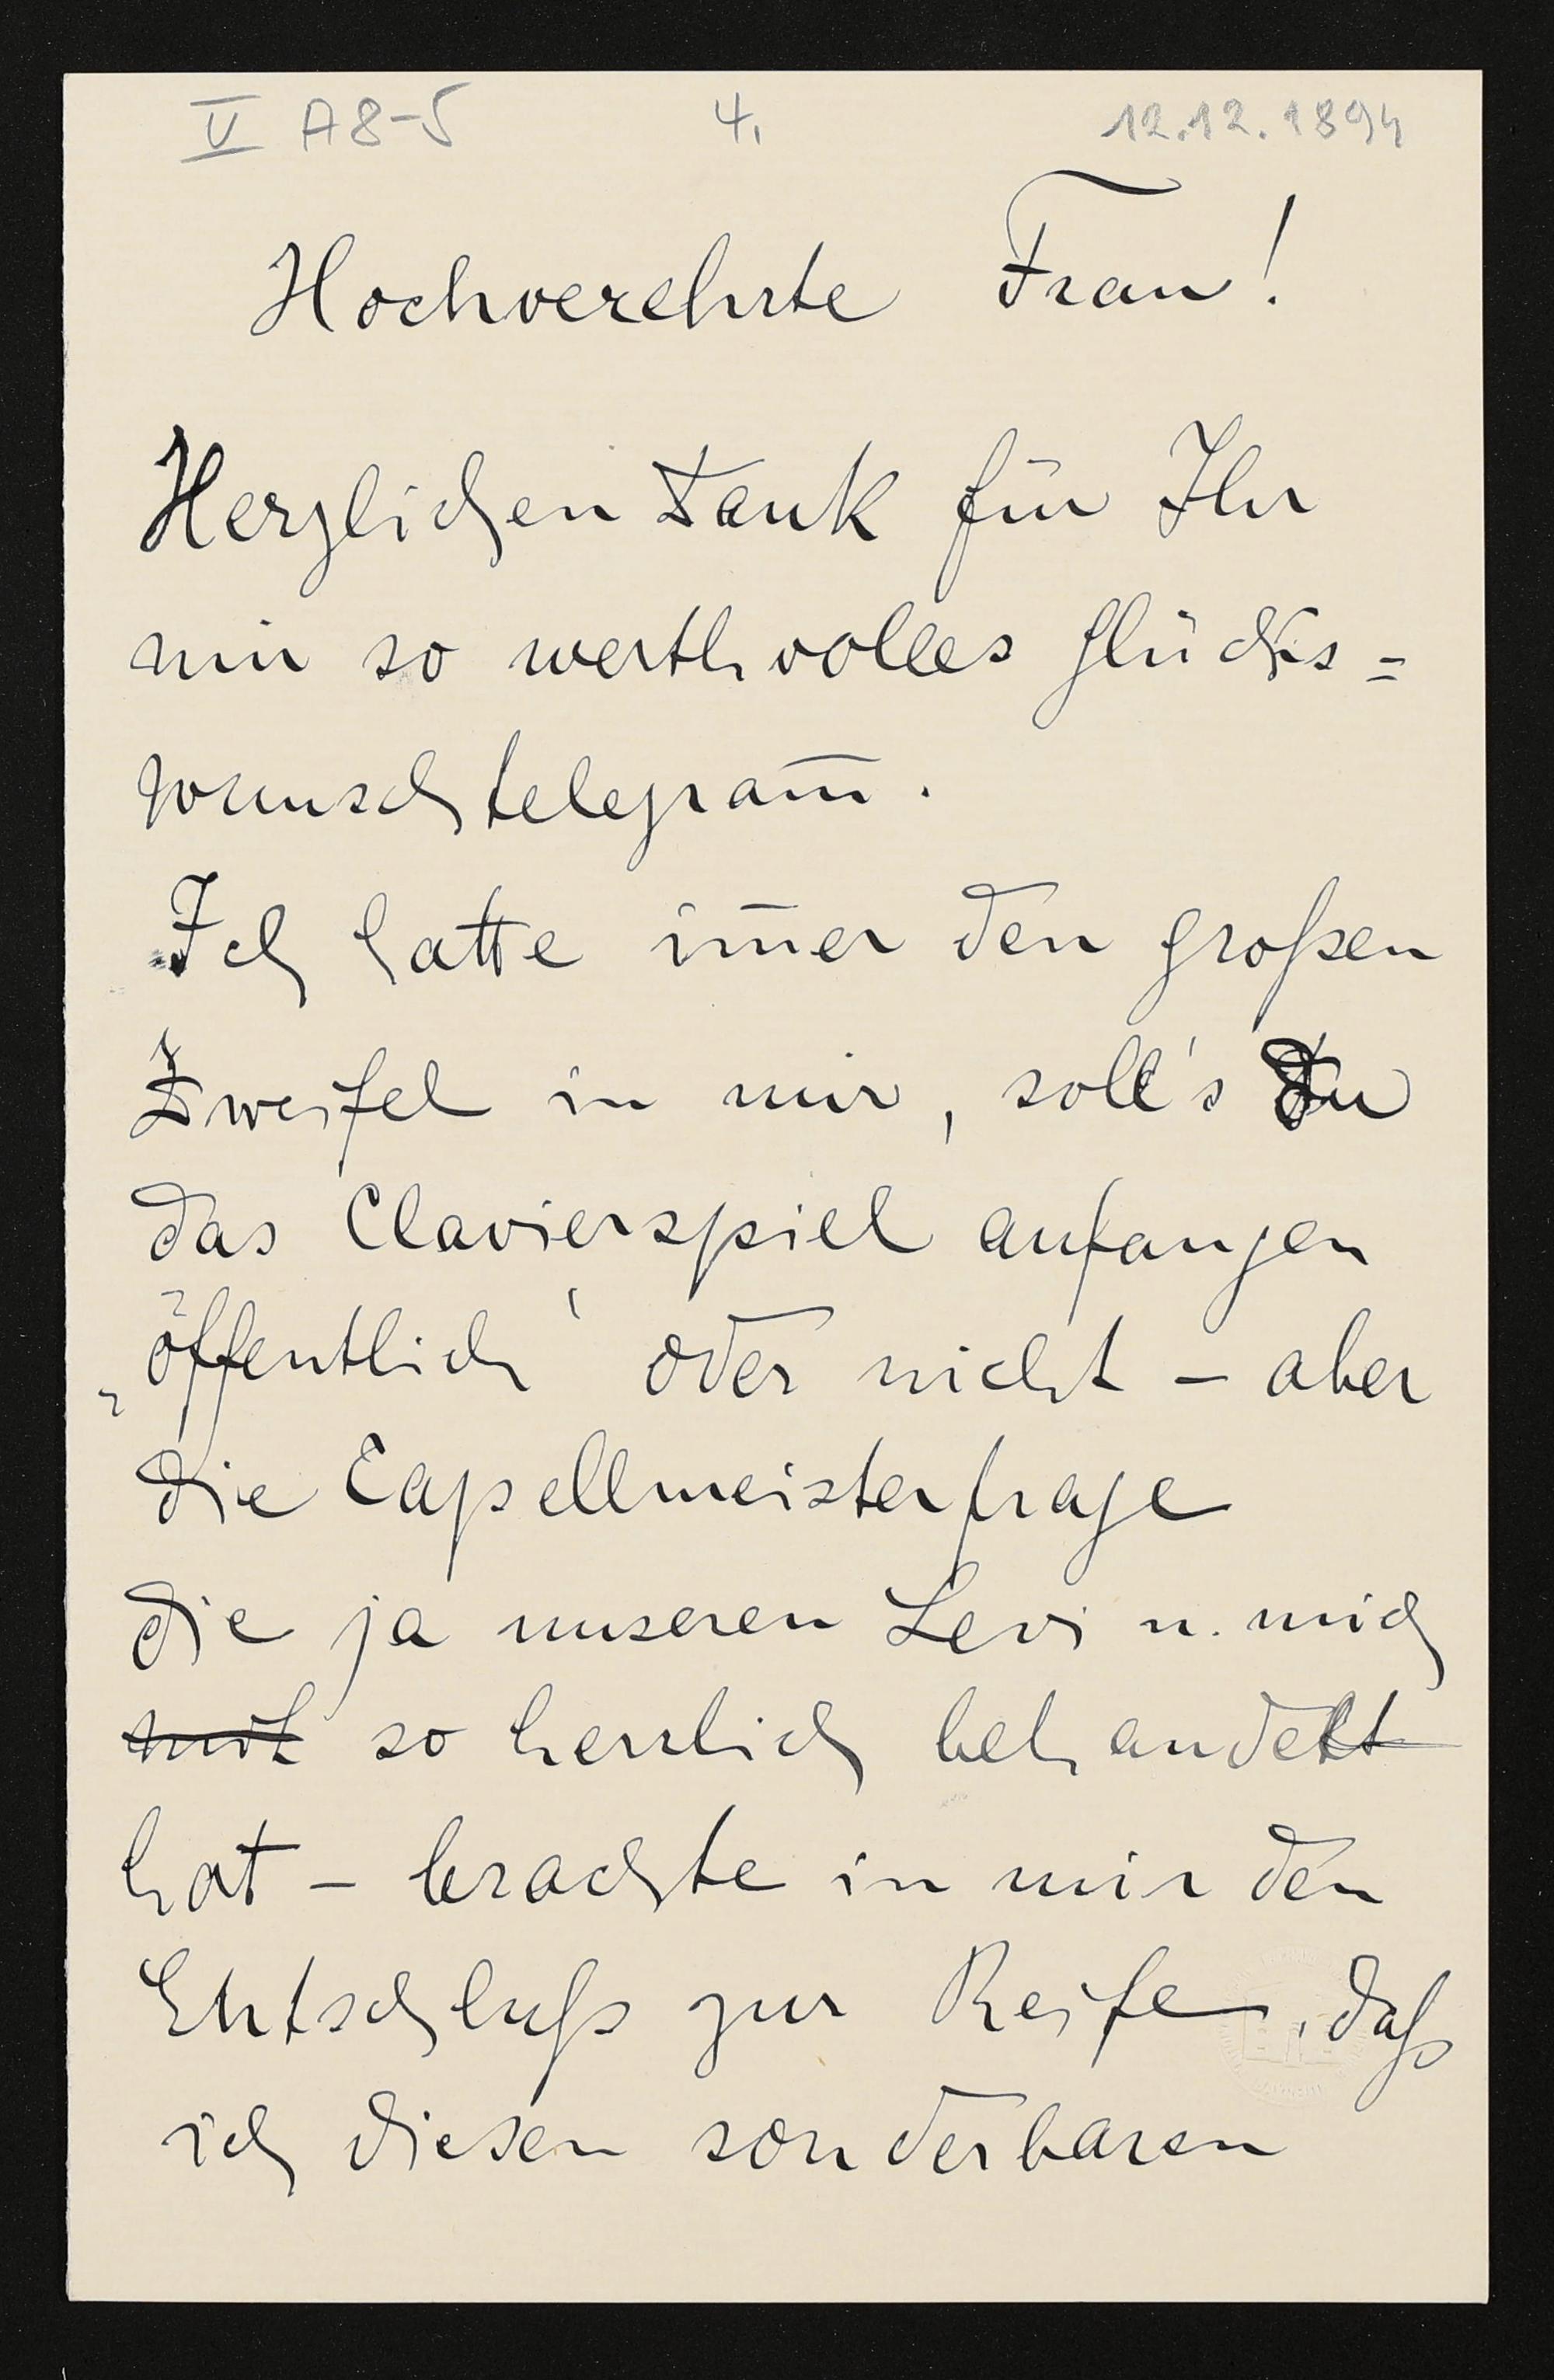 V A8-5 4. 12.12.1894
Hochverehrte Frau!
Herzlichen Dank für Ihr
mir so werthvolles Glücks=
wunschtelegram̅.
Ich hatte im̅er den großen
Zweifel in mir, soll's Du
das Clavierspiel anfangen
„öffentlich‘ oder nicht – aber
die Capellmeisterfrage
die ja unseren Levi u. mich
mit so herrlich behandelt
hat – brachte in mir den
Entschluß zur Reife, daß
ich diesen sonderbaren